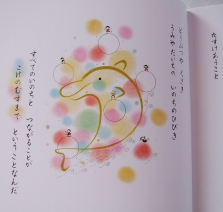 たすけあうこと
うみやだいちの いのちのひびき
すべてのいのちと つながることが
こけのむすまで ということなんだ